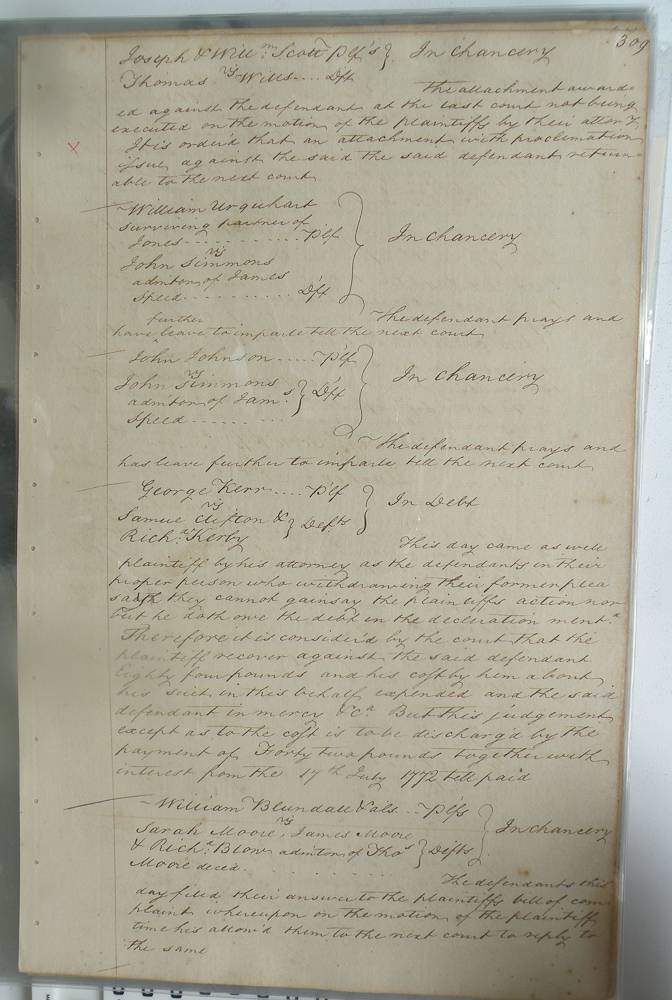 309
Joseph & Will.m Scott Plf's } In Chancery
vs
Thomas Wills .... Dft
The attachment award=
ed against the defendant at the last court not being
executed on the motion of the plaintiffs by their attor'y
It is order'd that an attachment with proclamation
issue against the said the said defendant return=
able to the next court
William Urquhart
surviving partner of
Jones ........... Plf
vs
In Chancery
John Simmons
admiton of James
Speed .......... Dft
The defendant prays and
further
have leave to imparle till the next court
John Johnson ..... Plf
vs
John Simmons
admiton of Jam.s } Dft
In Chancery
Speed ........
The defendant prays and
has leave further to imparle till the next court
George Kerr .... Plf
vs
In Debt
Samuel Clifton & } Defts
Rich.d Kerby
This day came as well
plaintiff by his attorney as the defendants in their
proper person who withdrawing their former plea
saith they cannot gainsay the plaintiffs action nor
but he doth owe the debt in the decleration ment.d
Therefore it is consider'd by the court that the
plaintiff recover against the said defendant
Eighty four pounds and his cost by him about
his suit in this behalf expended and the said
defendant in mercy &c.a But this judgement
except as to the cost is to be discharg'd by the
payment of Forty two pounds together with
interest from the 17th July 1772 till paid
William Blundall & als .. Plfs
vs
In Chancery
Sarah Moore, James Moore
& Rich.d Blow admiton of Tho.s } Difts
Moore deced. .......
The defendants this
day filed their answer to the plaintiffs bill of com
plaint whereupon on the motion of the plaintiffs
time his allow'd them to the next court to reply to
the same